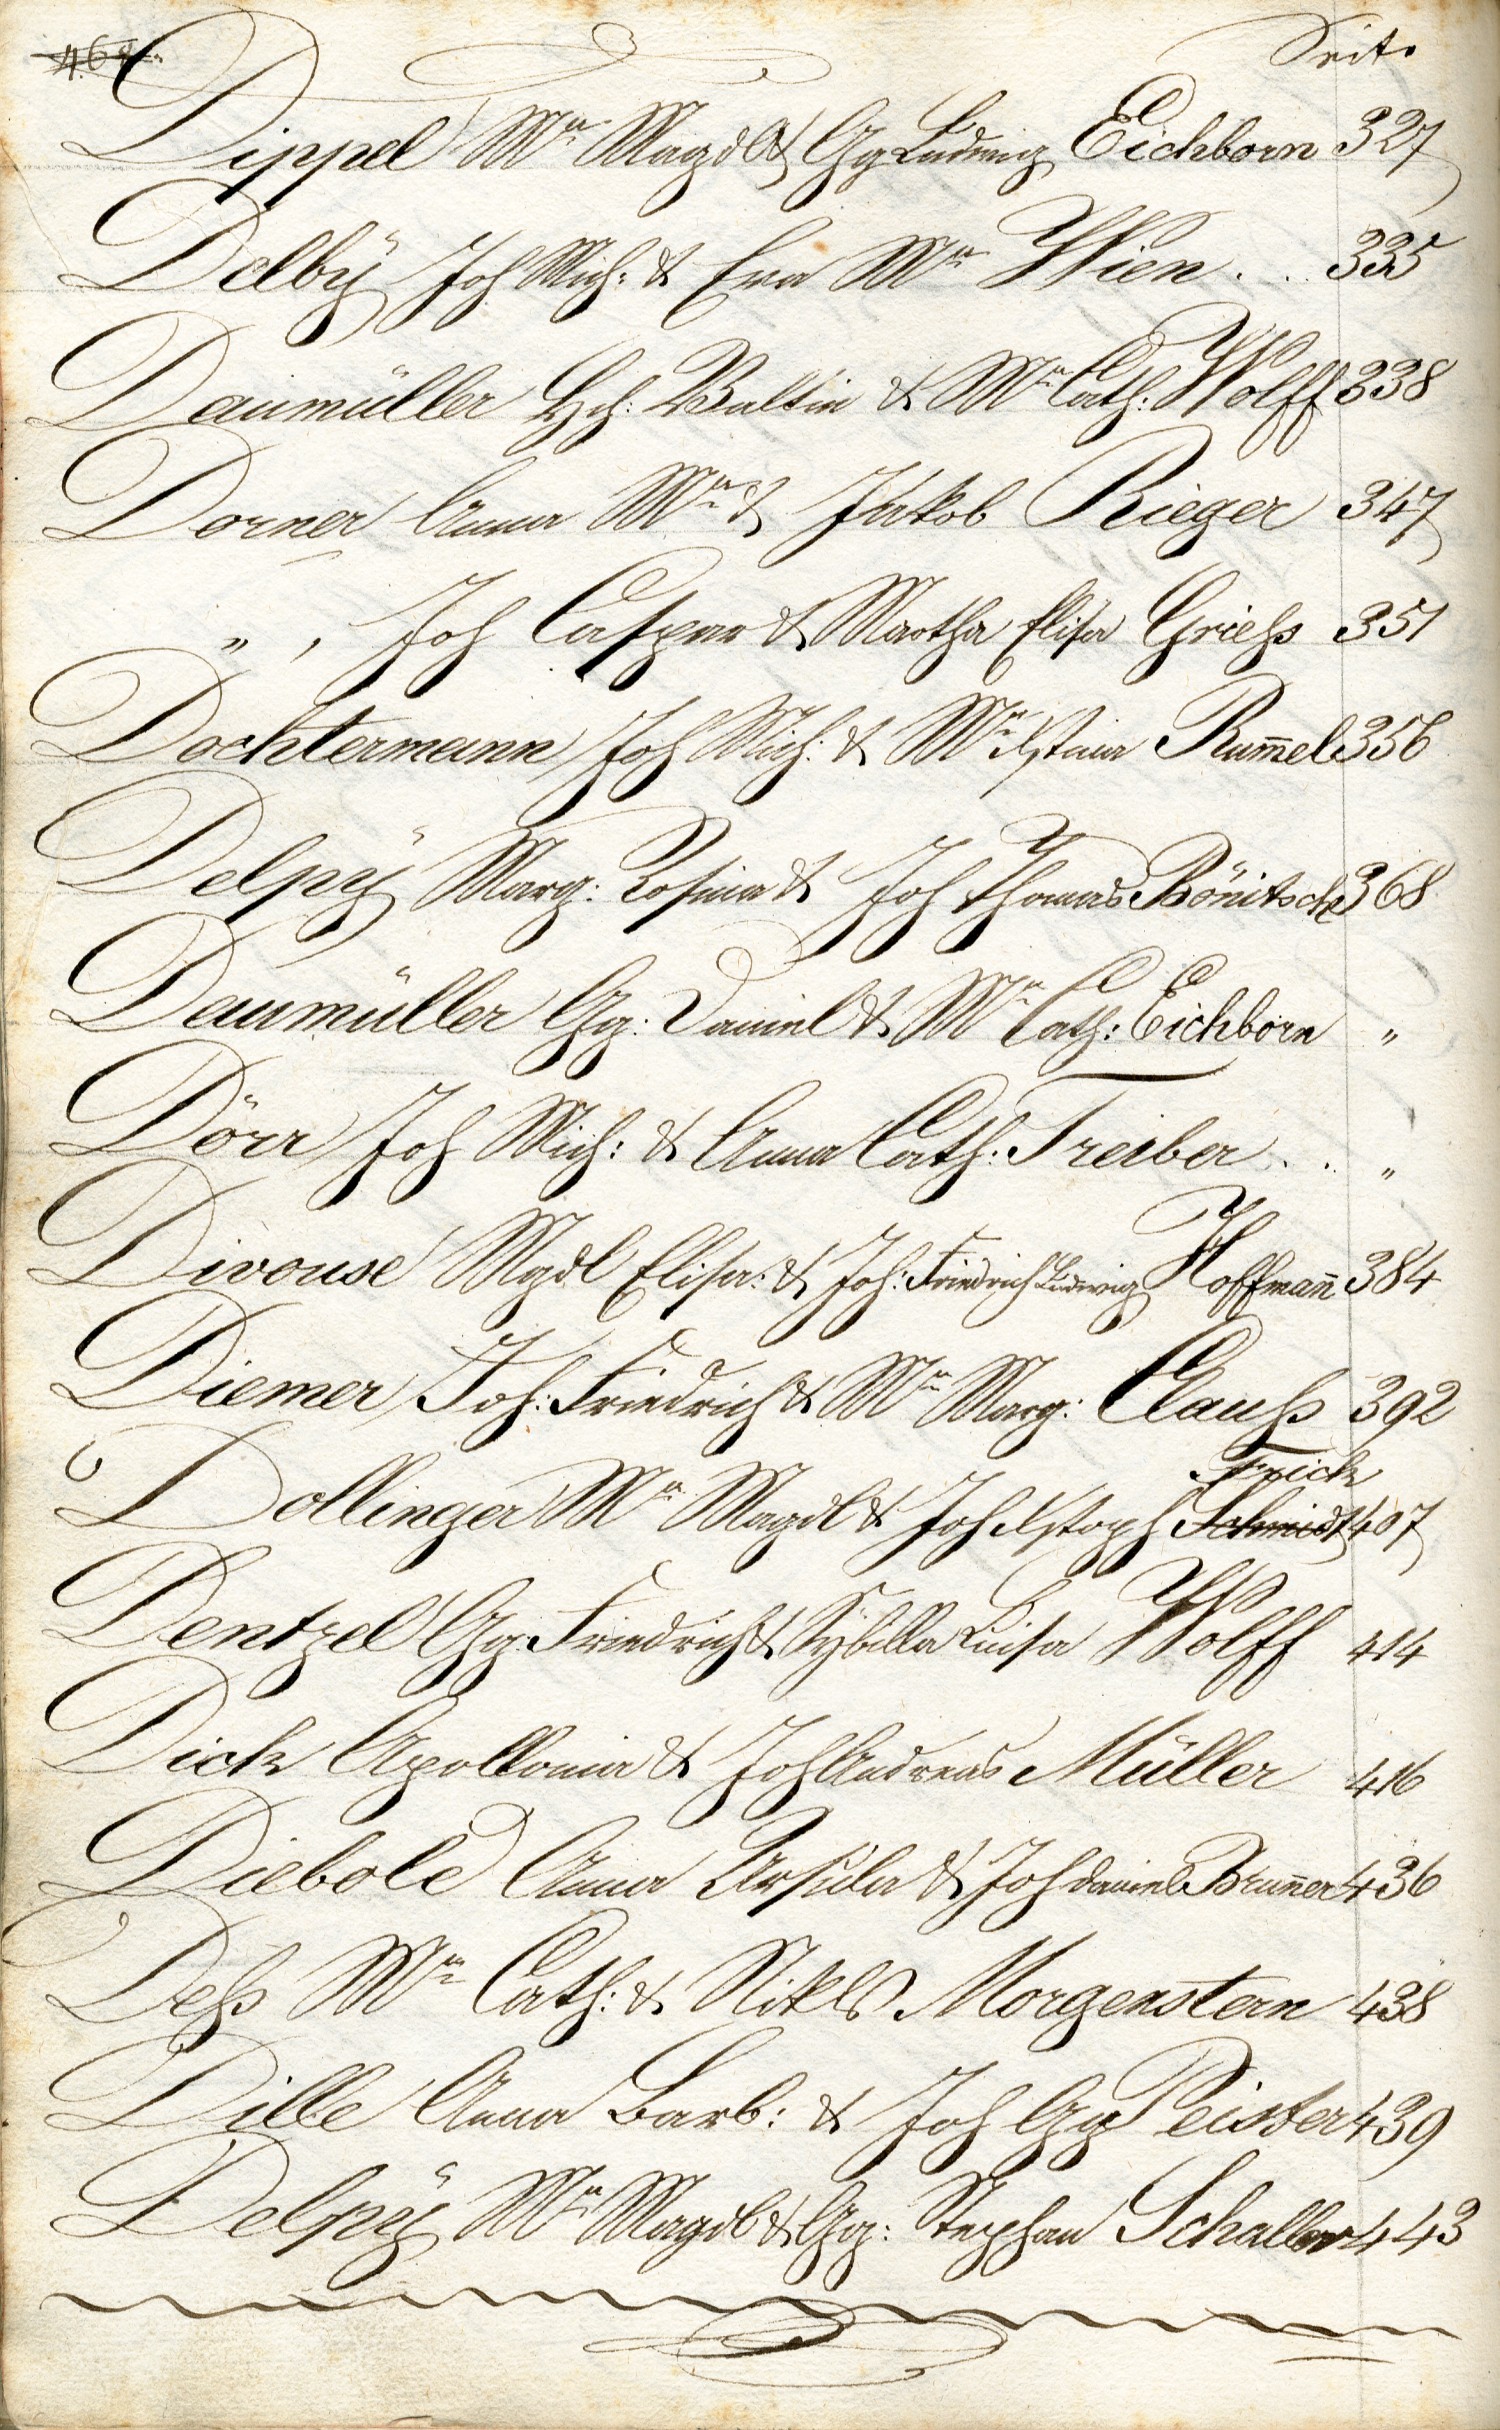 468. Seite
Dippel Mᵃ Magdl & Gg Ludwig Eichborn 327
Delbÿ Joh Mich: & Eva Mᵃ Wien . . . 335
Daumüller Hch: Valtin & Mᵃ Cath: Wolff 338
Dorner Anna Mᵃ & Jakob Rieger 347
„ , Joh Caspar & Martha Elisa Griehs 351
Dochtermann Joh Mich: & Mᵃ Xstina Rum̄el 356
Delpÿ Marg: Rosina & Joh Thomas Bönitsch 368
Daumüller Gg: Daniel & Mᵃ Cath: Eichborn „
Dörr Joh Mich: & Anna Cath: Treiber . . „
Divouse Mgdl Elisa: & Joh: Friedrich Ludwig Hoffman̄ 384
Diemer Joh: Friedrich & Mᵃ Marg: Clauß 392
Frick
Dollinger Mᵃ Magdl & Joh Xstoph Schmidt 407
Dentzel Gg: Friedrich & Sÿbilla Luisa Wolff 414
Dick Apollonia & Joh Andreas Müller 416
Diebold Anna Ursula & Joh Daniel Brun̄er 436
Deß Mᵃ Cath: & Nikls Morgenstern 438
Dille Anna Barb: & Joh Gg Peister 439
Delpÿ Mᵃ Magdl & Gg: Stephan Schaller 443